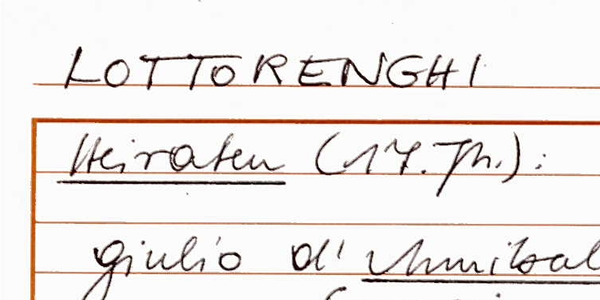 LOTTORENGHI
Heiraten (17. Jh.):
giulio d'Annibal